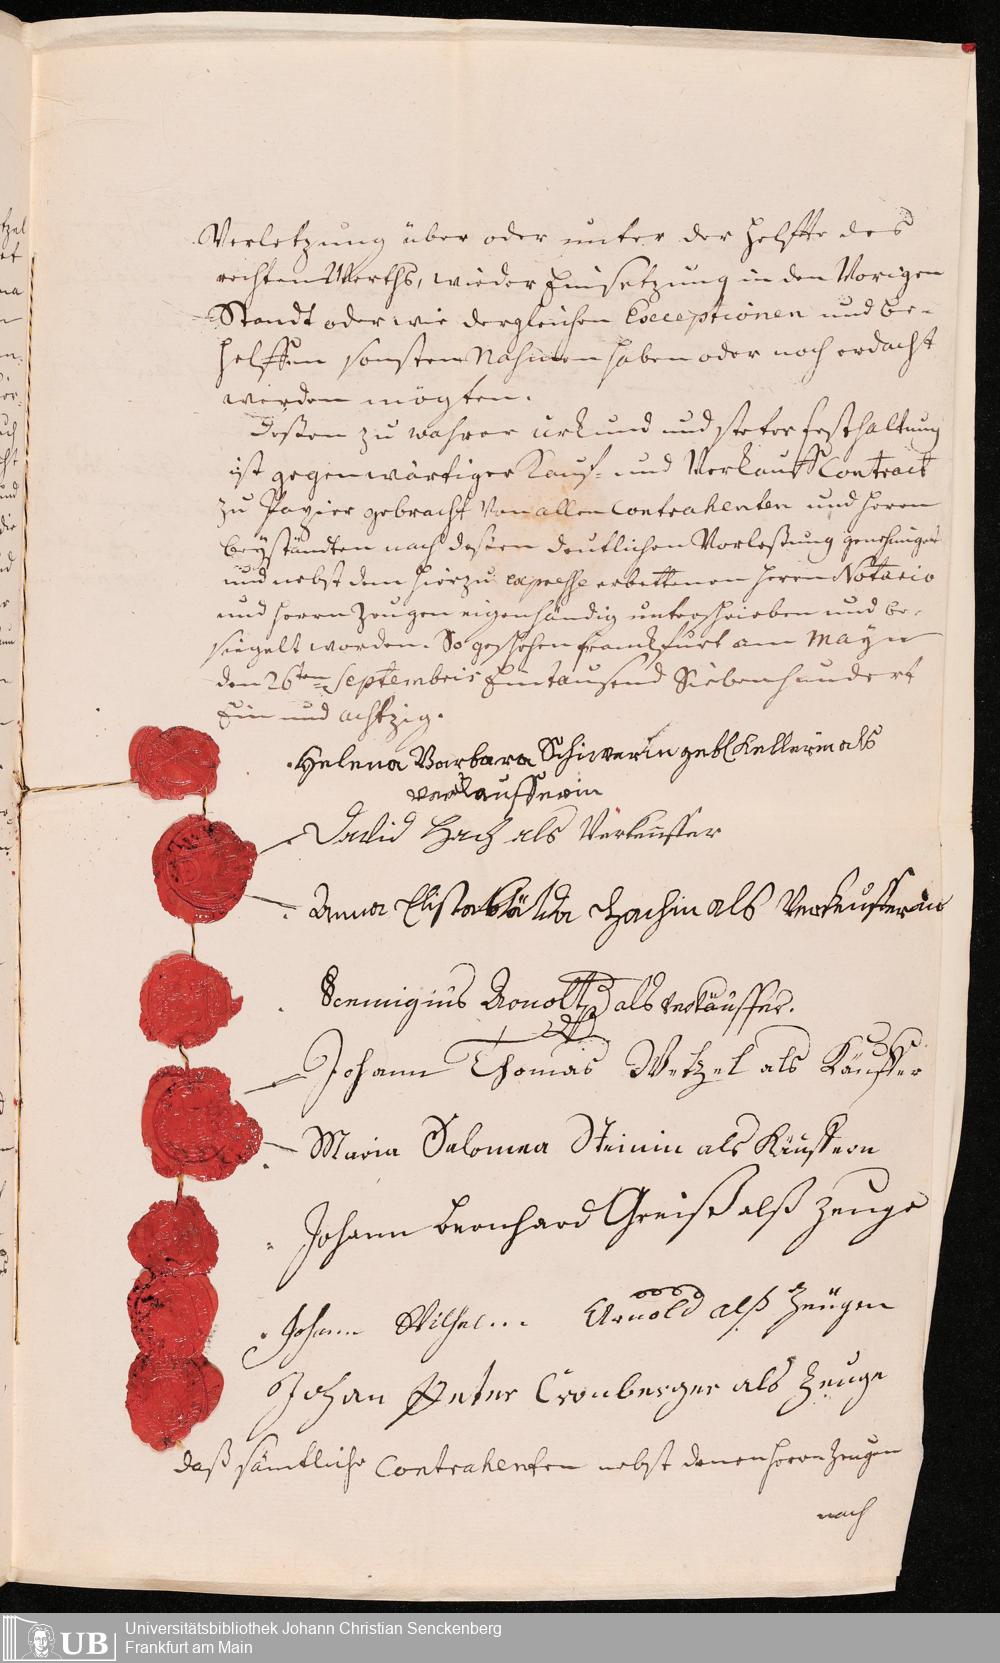 Verletzung über oder unter der Helffte des
rechten Werths, wieder Einsetzung in den Vorigen
Standt oder wie dergleichen Exceptionen und be-
helffen sonsten Nahmen haben oder noch erdacht
werden mögten.
Deßen zu wahrer Urkund und steter festhaltung
ist gegenwärtiger Kauf- und Verkauffs Contract
zu Papier gebracht von allen Contrahenten und Herrn
Beyständten nach deßen deutlichen Vorleßung genehmiget
und nebst dem hierzu expresse erbettenen Herrn Notario
und Herrn Zeugen eigenhändig unterschrieben und be-
siegelt worden. So geschehen Franckfurt am Mayn
den 26ten Septembris Eintausend Siebenhundert
Ein und achtzig.
Helena Barbara Schiwerin geb. Kellerin als
Verkaufferin
David Zach als Verkeuffer
Anna Elisabätha Zachin als Verkeufferin
Remigius Arnolt als Verkäuffer.
Johann Thomas Wetzel als Käuffer
Maria Salomea Steinin als Käuffern
Johann Bernhard Greiß alß Zeuge
Johann Wilhel... Arnold alß Zeugen
Johan Peter Cronberger als Zeuge
Daß sämtliche Contrahenten nebst denen Herrn Zeugen
nach
UB
Universitätsbibliothek Johann Christian Senckenberg
Frankfurt am Main